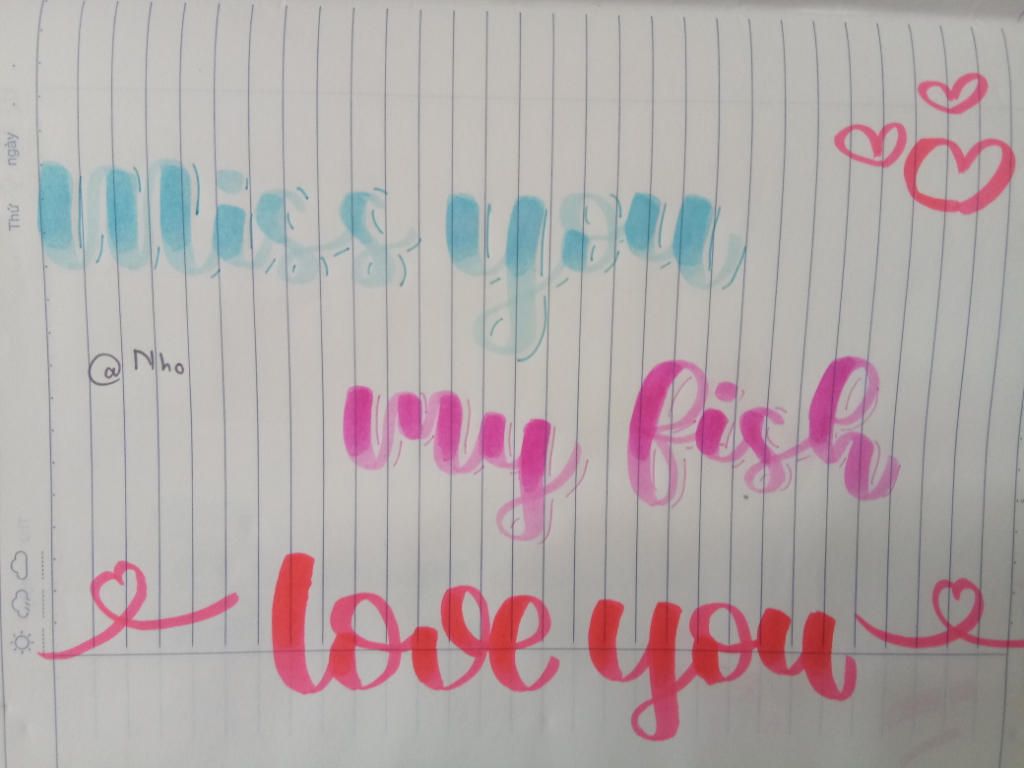 Miss you
@ Nho
my fish
love you
Thứ ngày